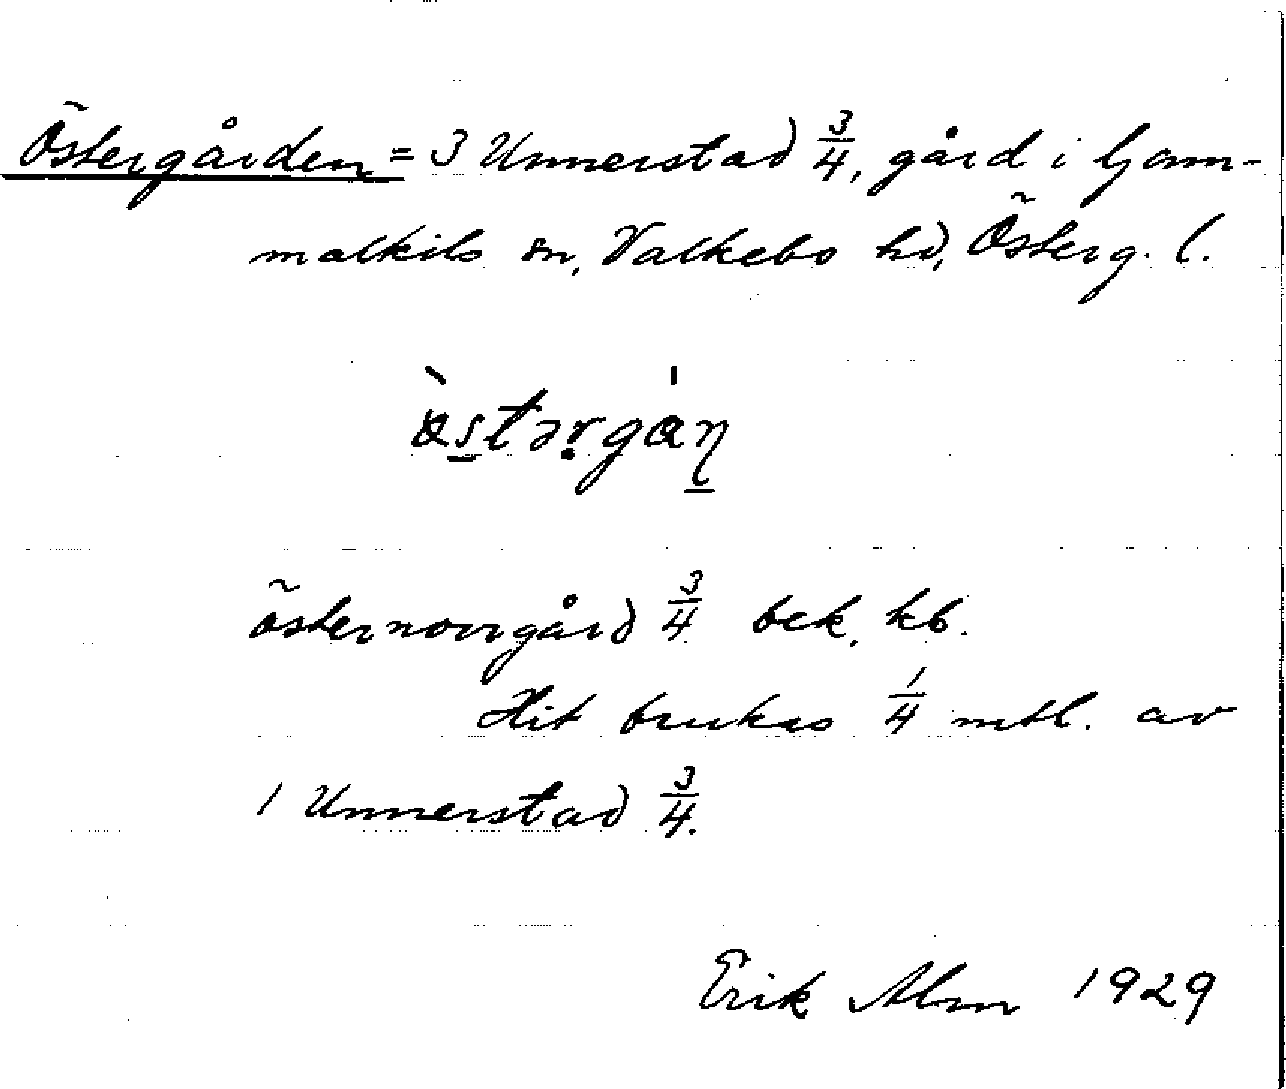 Östergården = 3 Unnerstad 3/4, gård i Gam-
malkils sn, Valkebo hd, Österg. l.
östernorrgård 3/4 bek, kb.
Hit brukas 1/4 mtl. av
1 Unnerstad 3/4.
Erik Alm 1929